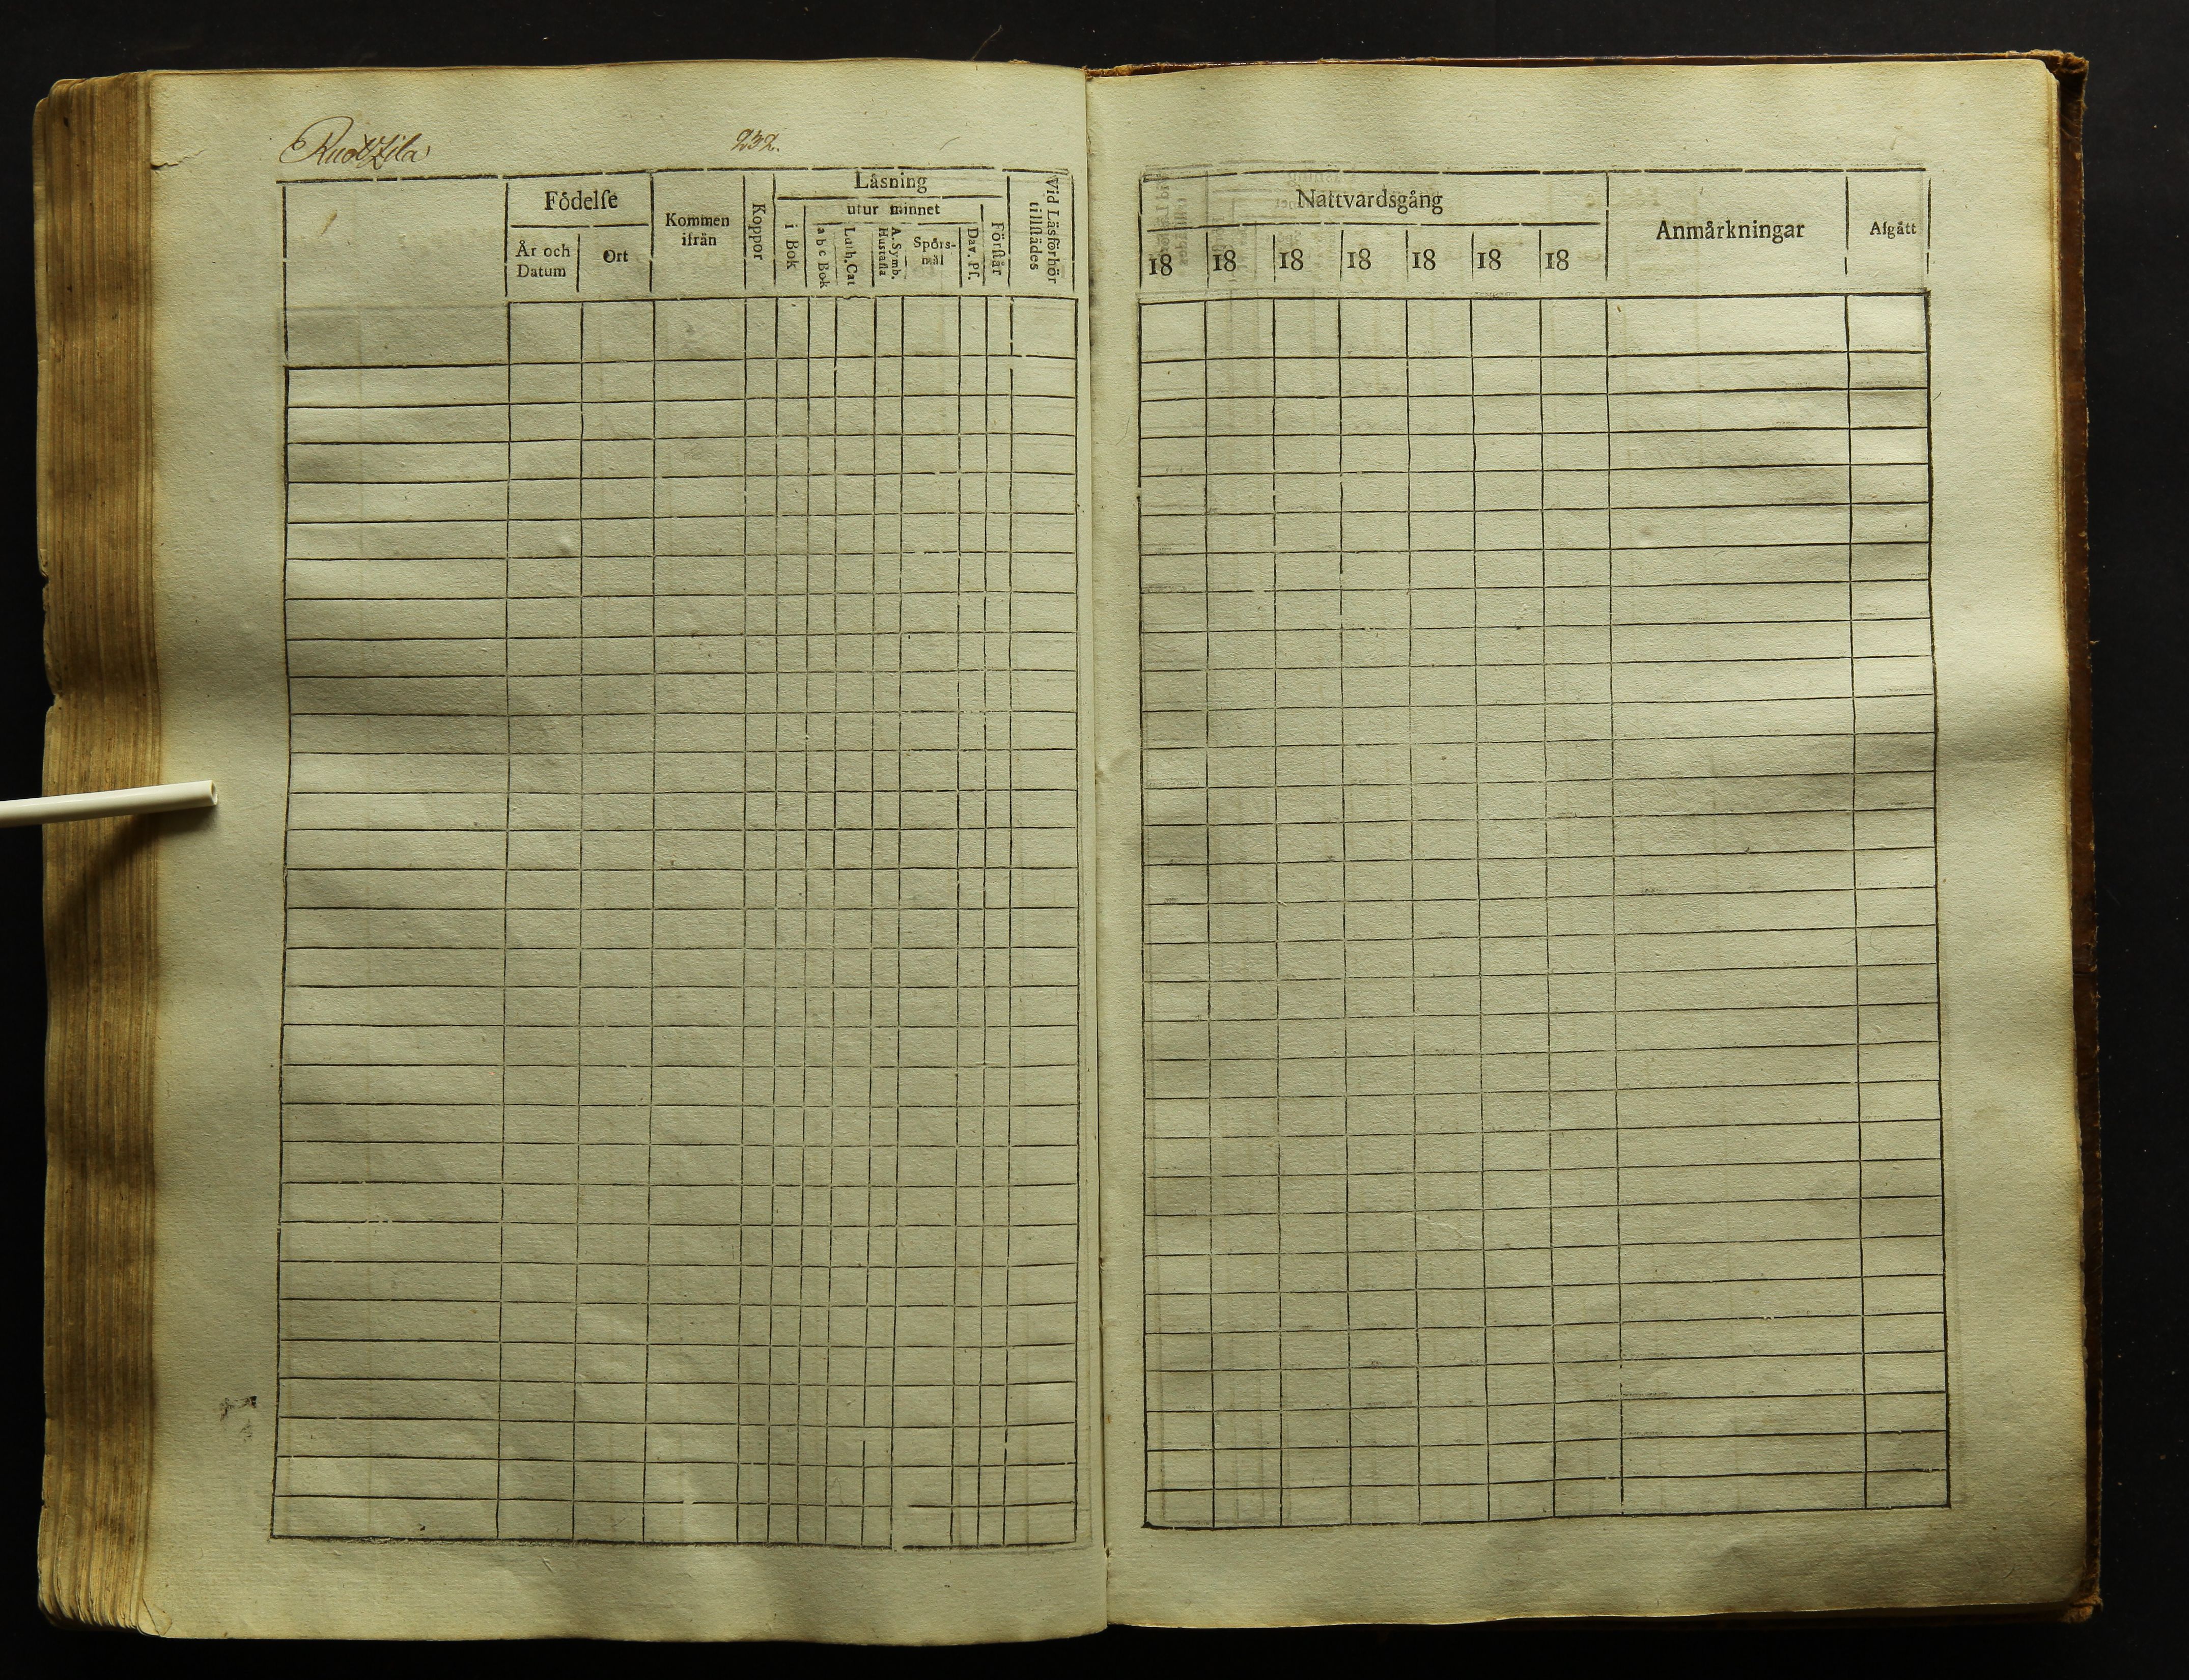 Ruotzila 232.
Födelse
År och Datum
Ort
Kommen ifrån
Koppor
Läsning
i Bok
utur minnet
a b c Bok
Luth. Cat
A. Symb. Hustafla
Spörs-mål
Dav. Ps.
Förstår
Vid Läsförhör tillstädes
Nattvardsgång
18 18 18 18 18 18 18
Anmärkningar
Afgått